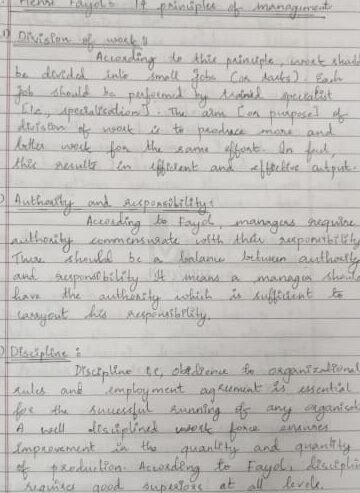 Henri Fayol's 14 principles of management
1) Division of work :
According to this principle, work should
be divided into small jobs (or tasks). Each
job should be performed by trained specialist
[i.e., specialisation]. The aim [or purpose] of
division of work is to produce more and
better work for the same effort. In fact,
this results in efficient and effective output.
) Authority and responsibility :
According to Fayol, managers require
authority commensurate with their responsibility
There should be a balance between authority
and responsibility It means a manager should
have the authority which is sufficient to
carryout his responsibility.
) Discipline :
Discipline i.e, obedience to organizational
rules and employment agreement is essential
for the successful running of any organisat
A well disciplined work force ensures
improvement in the quality and quantity
of production. According to Fayol, disciplin
requires good superiors at all levels.